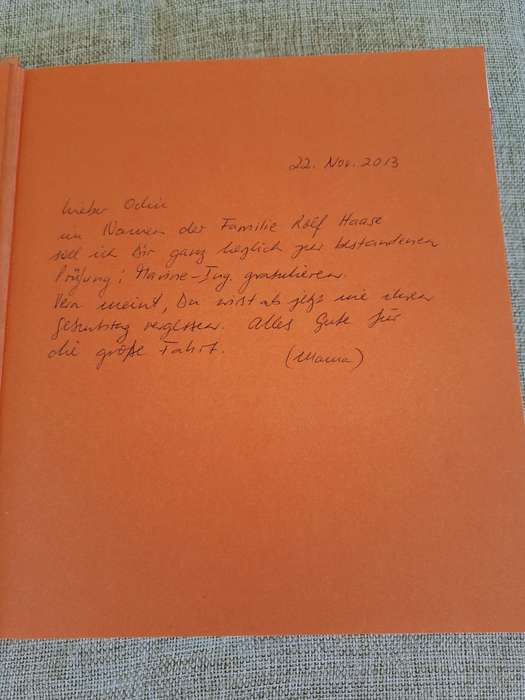 22. Nov. 2013
Lieber Odin
im Namen der Familie Rolf Haase
soll ich Dir ganz herzlich zur bestandenen
Prüfung: Marine-Ing. gratulieren.
meint, Du wirst ab jetzt nie ihren
Geburtstag vergessen. Alles Gute für
die große Fahrt. (Mama)